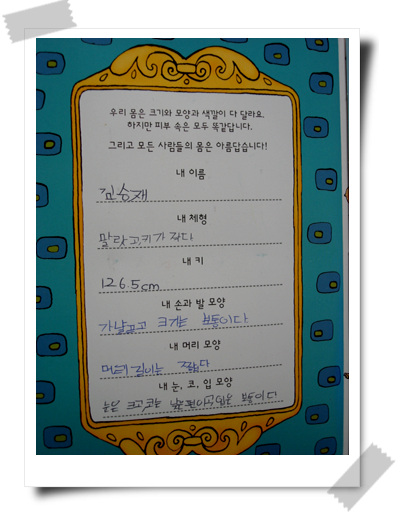 우리 몸은 크기와 모양과 색깔이 다 달라요.
하지만 피부 속은 모두 똑같답니다.
그리고 모든 사람들의 몸은 아름답습니다!
내 이름
김승재
내 체형
말랐고 키가 작다
내 키
126.5cm
내 손과 발 모양
가날프고 크기는 보통이다
내 머리 모양
머리 길이는 짧다
내 눈, 코, 입 모양
눈은 크고, 코는 편이고, 입은 보통이다